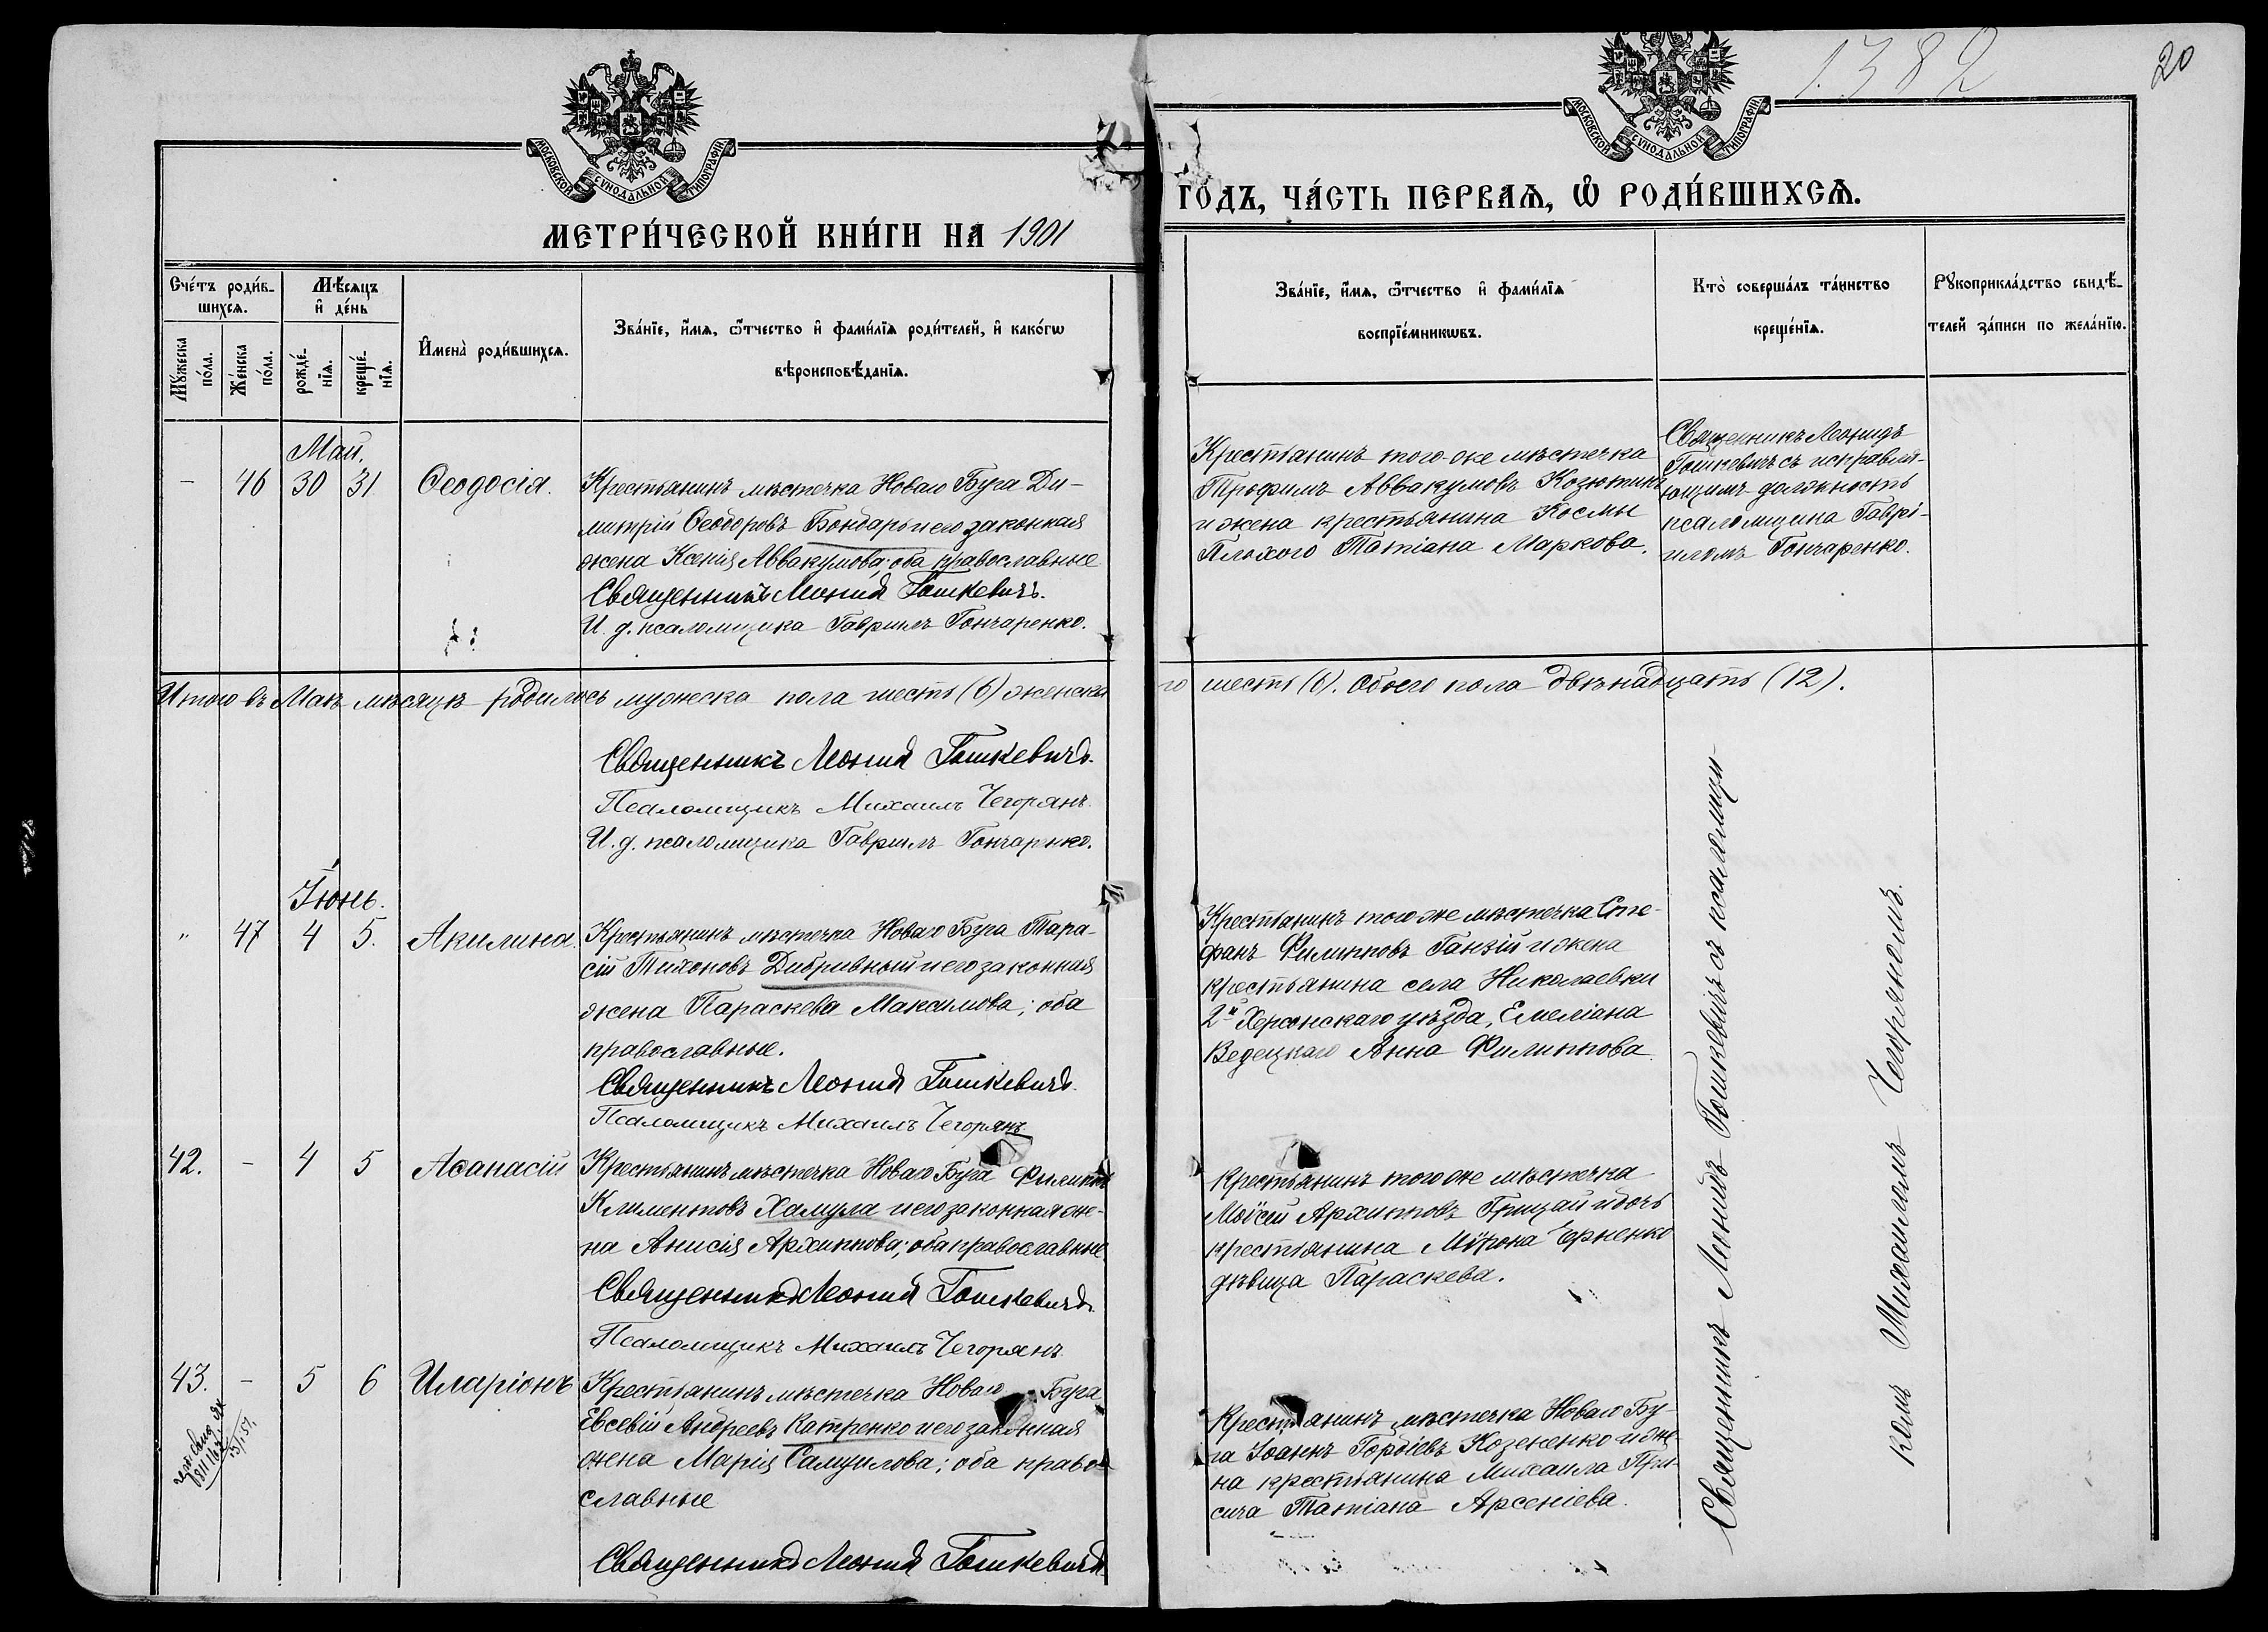 1382
20
МОСКОВСКОЙ СѴНОДАЛЬНОЙ ТИПОГРАФІИ
МОСКОВСКОЙ СѴНОДАЛЬНОЙ ТИПОГРАФІИ
МЕТРИ́ЧЕСКОЙ КНИ́ГИ НА 1901
ГО́ДЪ, ЧА́СТЬ ПЕРВАѦ, Ѽ РОДИ́ВШИХСѦ.
Сче́тъ роди́в-
шихсѧ.
Мꙋ́жеска по́ла.
Же́нска по́ла.
Мѣ́сѧцъ
и҆ де́нь
рожде́-
нїѧ.
креще́-
нїѧ.
И҆мена̀ роди́вшихсѧ.
Зва́нїе, и҆́мѧ, ѻ҆́тчество и҆ фами́лїѧ роди́телей, и҆ како́гѡ
вѣроисповѣ́данїѧ.
Зва́нїе, и҆́мѧ, ѻ҆́тчество и҆ фами́лїѧ
воспрїе́мникѡвъ.
Кто̀ соверша́лъ та́инство
креще́нїѧ.
Рꙋкоприкла́дство свидѣ́-
телей за́писи по жела́нїю.
Май.
- 46 30 31 Ѳеодосія.
Крестьянинъ мѣстечка Новаго Буга Ди-
митрій Ѳеодоровъ Бондарь и его законная
жена Ксенія Аввакумова; оба православные
Священникъ Леонид Гошкевичъ.
И. д. псаломщика Гавриилъ Гончаренко.
Крестьянинъ того-же мѣстечка
Трофимъ Аввакумовъ Козютинъ
и жена крестьянина Космы
Плохого Татіана Маркова.
Священникъ Леонидъ
Гошкевичъ съ исправля-
ющимъ должность
псаломщика Гаврі-
иломъ Гончаренко.
Итого въ Маѣ мѣсяцѣ родилось мужеска пола шесть (6) женска
го шесть (6). Обоего пола двѣнадцать (12).
Священникъ Леонид Гошкевичъ.
Псаломщикъ Михаилъ Чегорянъ.
И. д. псаломщика Гавриилъ Гончаренко.
Іюнь.
" 47 4 5. Акилина.
Крестьянинъ мѣстечка Новаго Буга Тара-
сій Тихоновъ Дибривный и его законная
жена Параскева Максимова; оба
православные.
Священникъ Леонид Гошкевичъ.
Псаломщикъ Михаилъ Чегорянъ
Крестьянинъ того-же мѣстечка Сте-
фанъ Филипповъ Ганзій и жена
крестьянина села Николаевки
2й Херсонскаго уѣзда, Емеліана
Ведецкаго Анна Филиппова
42. - 4 5 Аѳанасій
Крестьянинъ мѣстечка Новаго Буга Филиппъ
Климентовъ Хамула и его законная же-
на Анисія Архиппова; оба православные
Священникъ Леонид Гошкевичъ.
Псаломщикъ Михаилъ Чегорянъ
Крестьянинъ того же мѣстечка
Моѵсей Архипповъ Грицай и дочь
крестьянина Мѵрона Черненко
дѣвица Параскева.
43. - 5 6 Иларіонъ
Крестьянинъ мѣстечка Новаго Буга
Евсевій Андреевъ Катренко и его законная
жена Марія Самуилова; оба право-
славные
Священникъ Леонид Гошкевичъ
Крестьянинъ мѣстечка Новаго Бу-
га Іоаннъ Гордіевъ Козененко и же-
на крестьянина Михаила При-
сича Татіана Арсеніева.
Священникъ Леонидъ Гошкевичъ съ псаломщи-
комъ Михаиломъ Чегоряномъ.